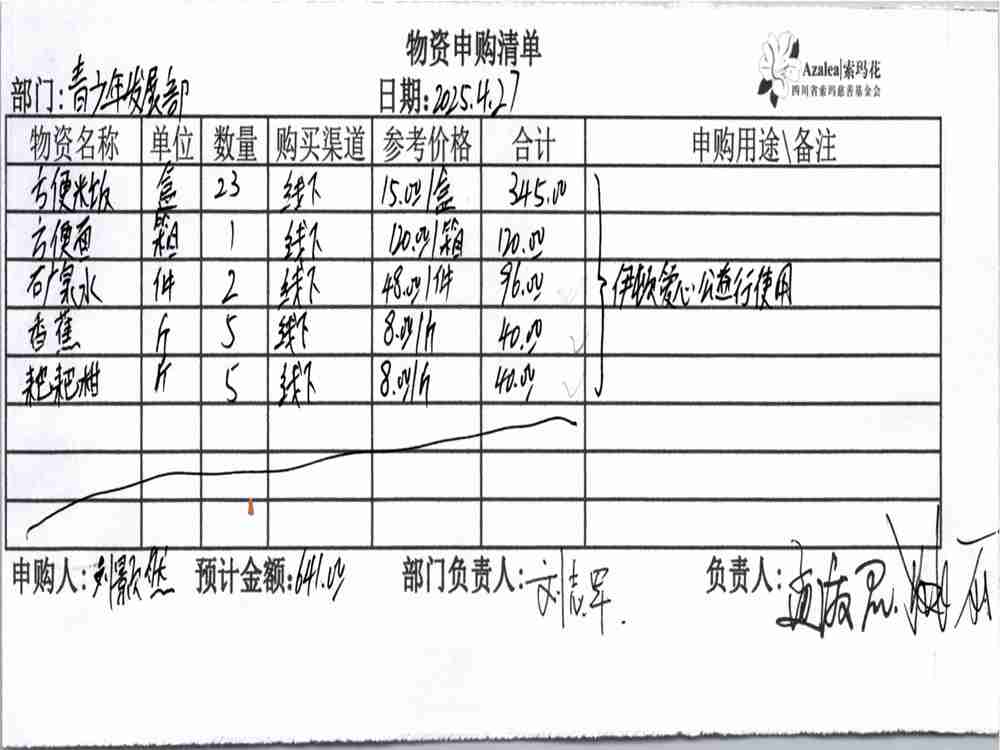 物资申购清单
Azalea|索玛花
四川省索玛慈善基金会
部门:青少年发展部 日期:2025.4.27
物资名称 单位 数量 购买渠道 参考价格 合计 申购用途\备注
方便米饭 盒 23 线下 15.00/盒 345.00
方便面 箱 1 线下 120.00/箱 120.00
矿泉水 件 2 线下 48.00/件 96.00 伊顿爱心公益行使用
香蕉 斤 5 线下 8.00/斤 40.00
耙耙柑 斤 5 线下 8.00/斤 40.00
申购人: 预计金额:641.00 部门负责人:刘志军. 负责人: